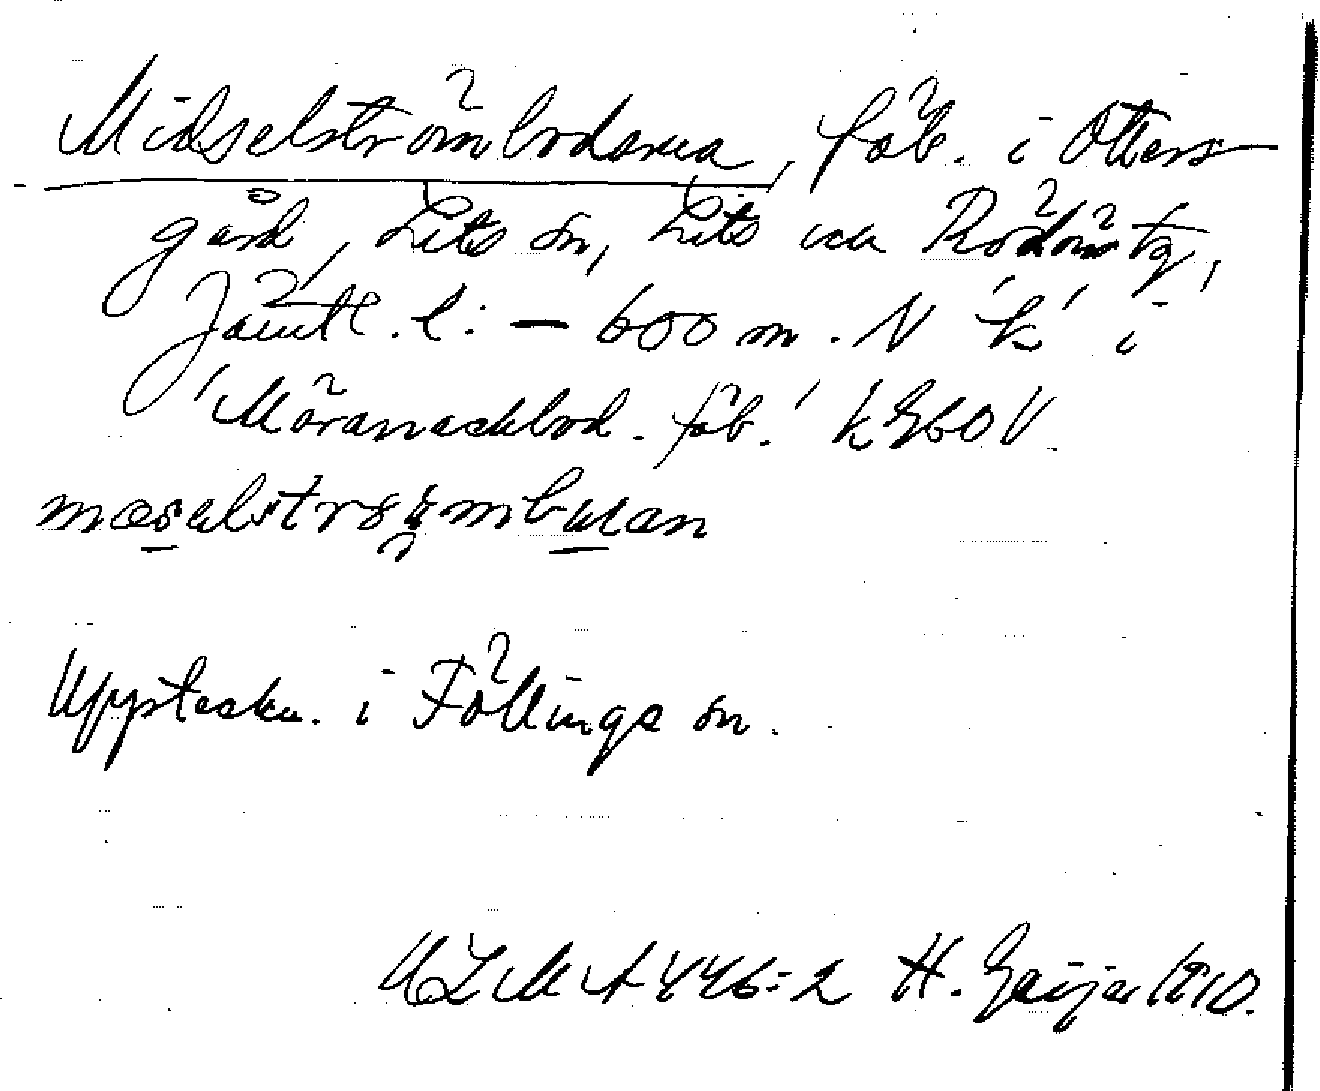 Midselströmbodarna, fäb. i Otters-
gård, Lits sn, Lits och Rödöns tg,
Jämtl. l: – 600 m. N 'k' i
'Möranackbod. fäb.' k 960 V
Uppteckn. i Föllinge sn.
ULMA 446:2 H. Geijer 1910.